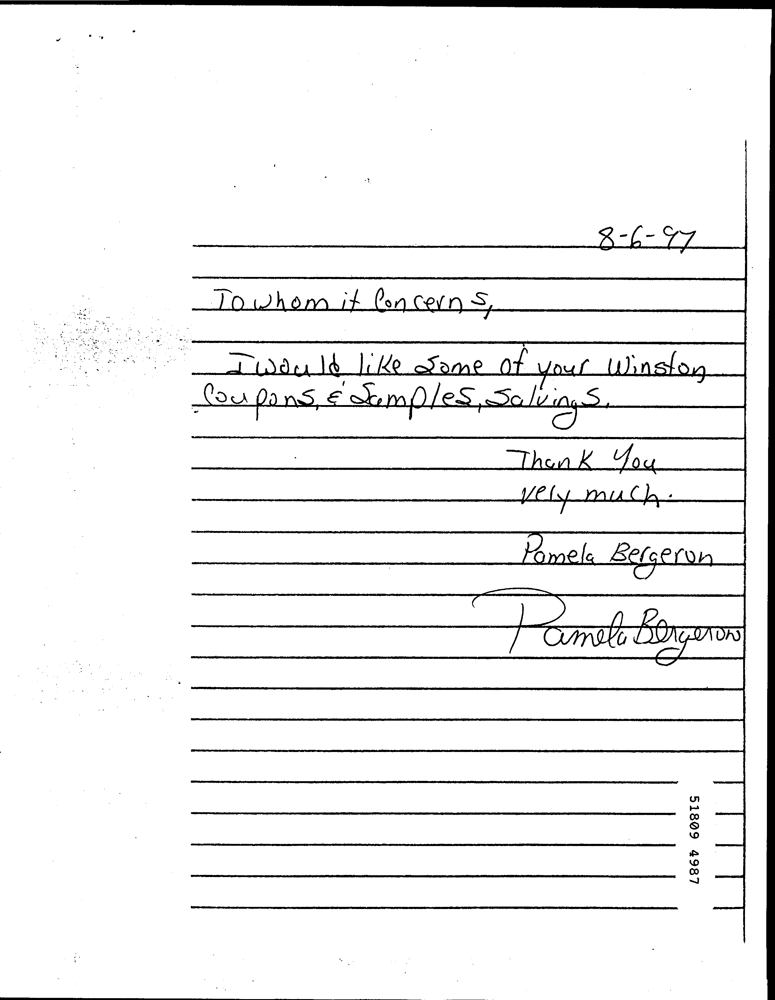 8-6-97
To whom it Concerns,
I would like some of your Winston
Coupons, & Samples, Salvings.
Thank You
very much.
Pamela Bergeron
Pamela Bergeron
51809 4987